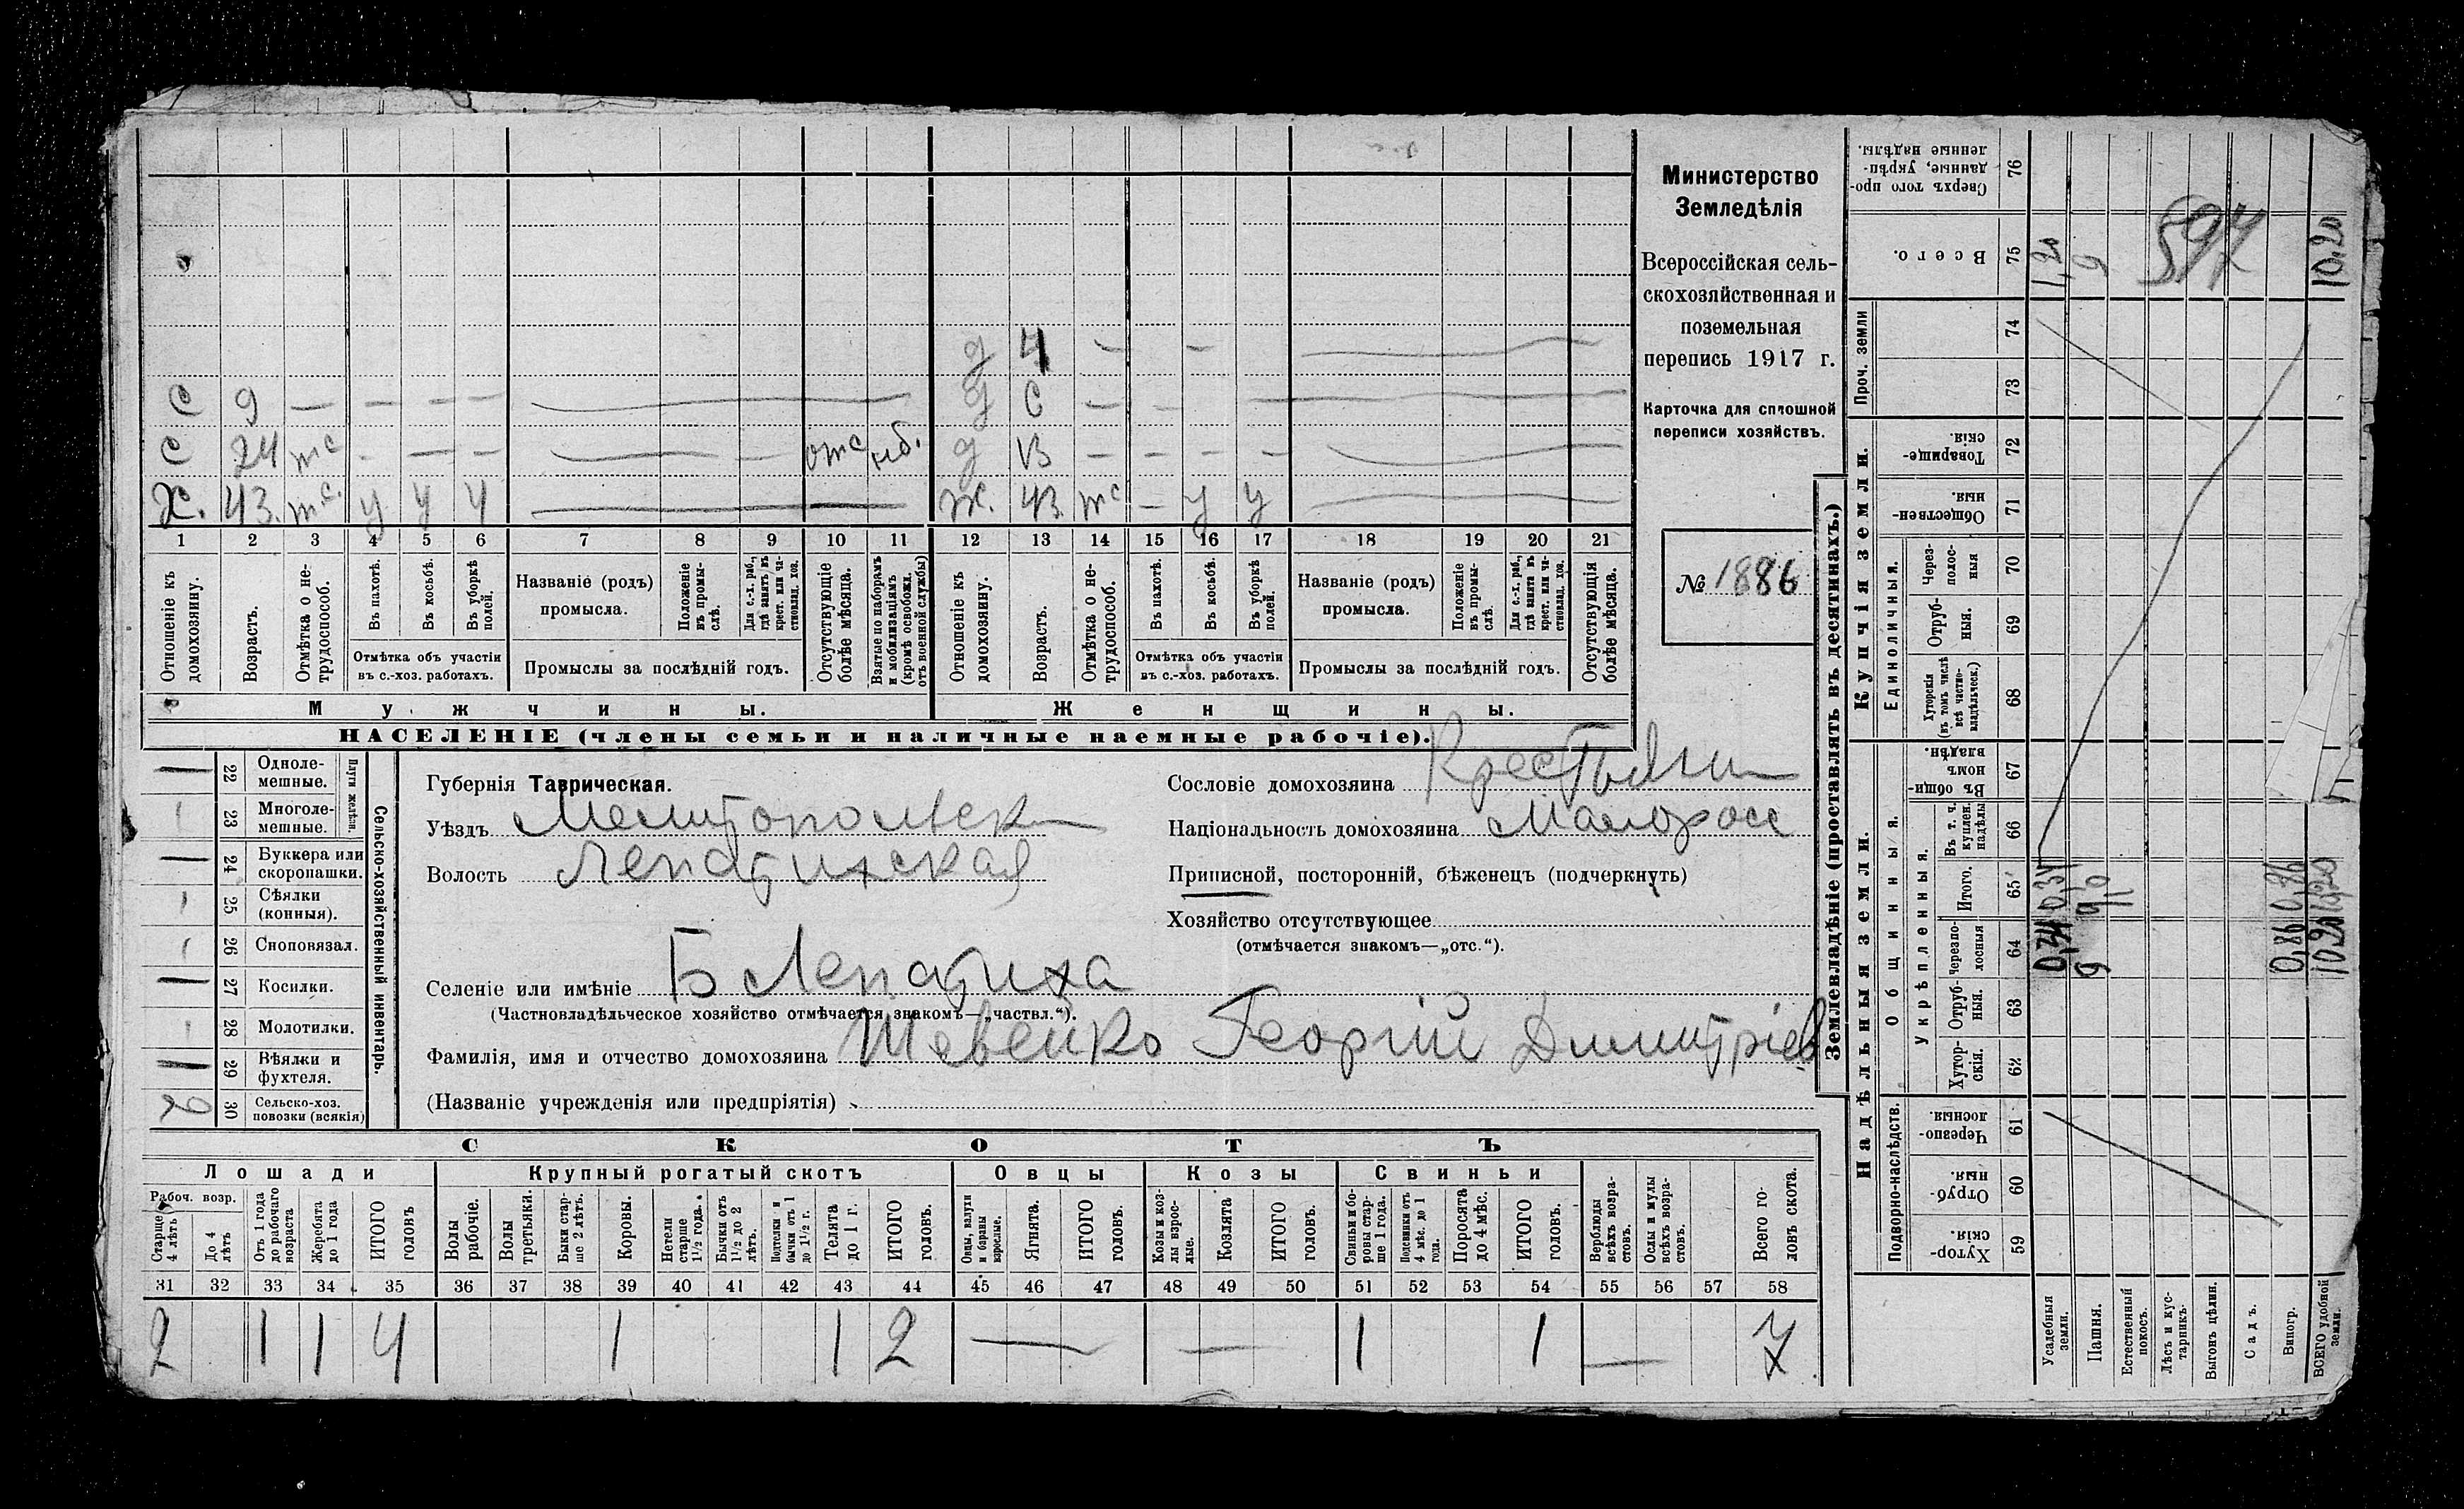 д 4 — —
С 9 — — — — д С — —
С 24 тс - — - — — отс моб. д 13 — — — —
Х. 43. тс. у у у — Ж. 43. тс — у у
1 2 3 4 5 6 7 8 9 10 11 12 13 14 15 16 17 18 19 20 21
Отношеніе къ домохозяину.
Возрастъ.
Отмѣтка о не-трудоспособ.
Въ пахотѣ.
Въ косьбѣ.
Въ уборкѣ полей.
Отмѣтка объ участіи
въ с.-хоз. работахъ.
Названіе (родъ)
промысла.
Положеніе въ промы-слѣ.
Для с.-х. раб., гдѣ занятъ въ крест. или ча-стновлад. хоз.
Промыслы за послѣдній годъ.
Отсутствующіе болѣе мѣсяца.
Взятые по наборамъ и мобилизаціямъ (кромѣ освобожд. отъ военной службы)
Отношеніе къ домохозяину.
Возрастъ.
Отмѣтка о не-трудоспособ.
Въ пахотѣ.
Въ косьбѣ.
Въ уборкѣ полей.
Отмѣтка объ участіи
въ с.-хоз. работахъ.
Названіе (родъ)
промысла.
Положеніе въ промы-слѣ.
Для с.-х. раб., гдѣ занятъ въ крест. или ча-стновлад. хоз.
Промыслы за послѣдній годъ.
Отсутствующія болѣе мѣсяца.
Мужчины. Женщины.
НАСЕЛЕНІЕ (члены семьи и наличные наемные рабочіе).
Министерство
Земледѣлія
Всероссійская сель-
скохозяйственная и
поземельная
перепись 1917 г.
Карточка для сплошной
переписи хозяйствъ.
№ 1886
— 22 Одноле-мешные.
23 Многоле-мешные.
Плуги желѣзн.
— 24 Буккера или скоропашки.
25 Сѣялки (конныя).
26 Сноповязал.
— 27 Косилки.
28 Молотилки.
— 29 Вѣялки и фухтеля.
2 30 Сельско-хоз. повозки (всякія)
Сельско-хозяйственный инвентарь.
Губернія Таврическая.
Уѣздъ Мелитопольск
Волость Лепатихская
Селеніе или имѣніе Б Лепатиха
(Частновладѣльческое хозяйство отмѣчается знакомъ—„частвл.“).
Фамилія, имя и отчество домохозяина Шевенко Георгій Димитріев
(Названіе учрежденія или предпріятія)
Сословіе домохозяина Крестьянин
Національность домохозяина Малоросс
Приписной, посторонній, бѣженецъ (подчеркнуть)
Хозяйство отсутствующее
(отмѣчается знакомъ—„отс.“).
СКОТЪ
Лошади Крупный рогатый скотъ Овцы Козы Свиньи
Рабоч. возр.
Старше 4 лѣтъ
До 4 лѣтъ
Отъ 1 года до рабочаго возраста
Жеребята до 1 года
ИТОГО головъ
Волы рабочіе.
Волы третьяки.
Быки стар-ше 2 лѣтъ.
Коровы.
Нетели старше 1½ года.
Бычки отъ 1½ до 2 лѣтъ.
Подтелки и бычки отъ 1 до 1½ г.
Телята до 1 г.
ИТОГО головъ.
Овцы, валухи и бараны взрослые.
Ягнята.
ИТОГО головъ.
Козы и коз-лы взрос-лые.
Козлята
ИТОГО головъ.
Свиньи и бо-ровы стар-ше 1 года.
Подсвинки отъ 4 мѣс. до 1 года.
Поросята до 4 мѣс.
ИТОГО головъ.
Верблюды всѣхъ возра-стовъ.
Ослы и мулы всѣхъ возра-стовъ.
Всего го-ловъ скота.
31 32 33 34 35 36 37 38 39 40 41 42 43 44 45 46 47 48 49 50 51 52 53 54 55 56 57 58
2 1 1 4 1 1 2 — — 1 1 — 7
Землевладѣніе (проставлять въ десятинахъ.)
Купчія земли.
Надѣльныя земли.
Сверхъ того про-данные, укрѣп-ленные надѣлы. 76
Всего. 75 1,20 9 10,20
597
Проч. земли 74 73
Товарище-скія. 72
Обществен-ныя. 71
Единоличныя.
Через-полос-ныя 70
Отруб-ныя. 69
Хуторскія (въ томъ числѣ всѣ частно-владѣльческ.) 68
Общинныя.
Въ общи-номъ владѣн. 67
Укрѣпленныя.
Въ т. ч. куплен. надѣлы 66
Итого. 65 0,34 9 0,86 10,20
Черезпо-лосныя 64 0,34 9 0,86 10,20
Отруб-ныя. 63
Хутор-скія. 62
Подворно-наслѣдств.
Черезпо-лосныя. 61
Отруб-ныя. 60
Хутор-скія. 59
Усадебныя земли.
Пашня.
Естественный покосъ.
Лѣсъ и кус-тарникъ.
Выгонъ цѣлин.
Садъ.
Виногр.
ВСЕГО удобной земли.